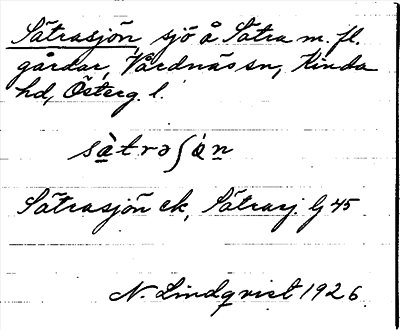 Sätrasjön, sjö å Sätra m. fl.
gårdar, Vårdnäs sn, Kinda
hd, Österg. l.
sa̠̍trəʃö̀n̠
Sätrasjön ek, Sätrasj. G 45
N. Lindqvist 1926